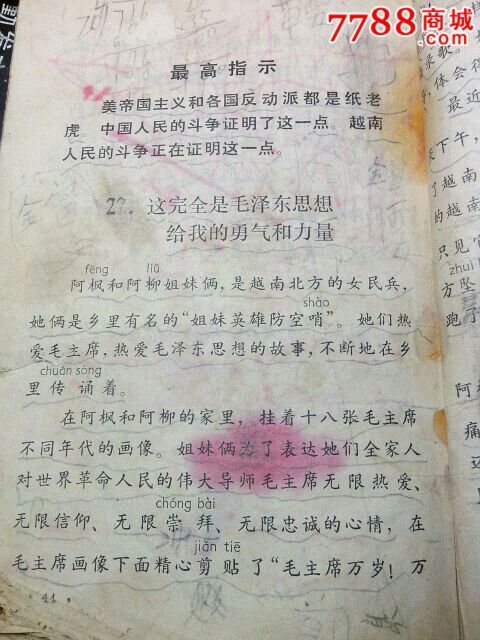 7788商城
最高指示
美帝国主义和各国反动派都是纸老
虎。中国人民的斗争证明了这一点。越南
人民的斗争正在证明这一点。
22. 这完全是毛泽东思想
给我的勇气和力量
fēng liǔ
阿枫和阿柳姐妹俩，是越南北方的女民兵，
shào
她俩是乡里有名的“姐妹英雄防空哨”。她们热
爱毛主席，热爱毛泽东思想的故事，不断地在乡
chuán sòng
里传诵着。
在阿枫和阿柳的家里，挂着十八张毛主席
不同年代的画像。姐妹俩为了表达她们全家人
对世界革命人民的伟大导师毛主席无限热爱、
chóng bài
无限信仰、无限崇拜、无限忠诚的心情，在
jiǎn tiē
毛主席画像下面精心剪贴了“毛主席万岁！万
体会得
最近
天下午，
了越南
的越南
只见官
zhuì
方坠
跑了
阿
痛
还